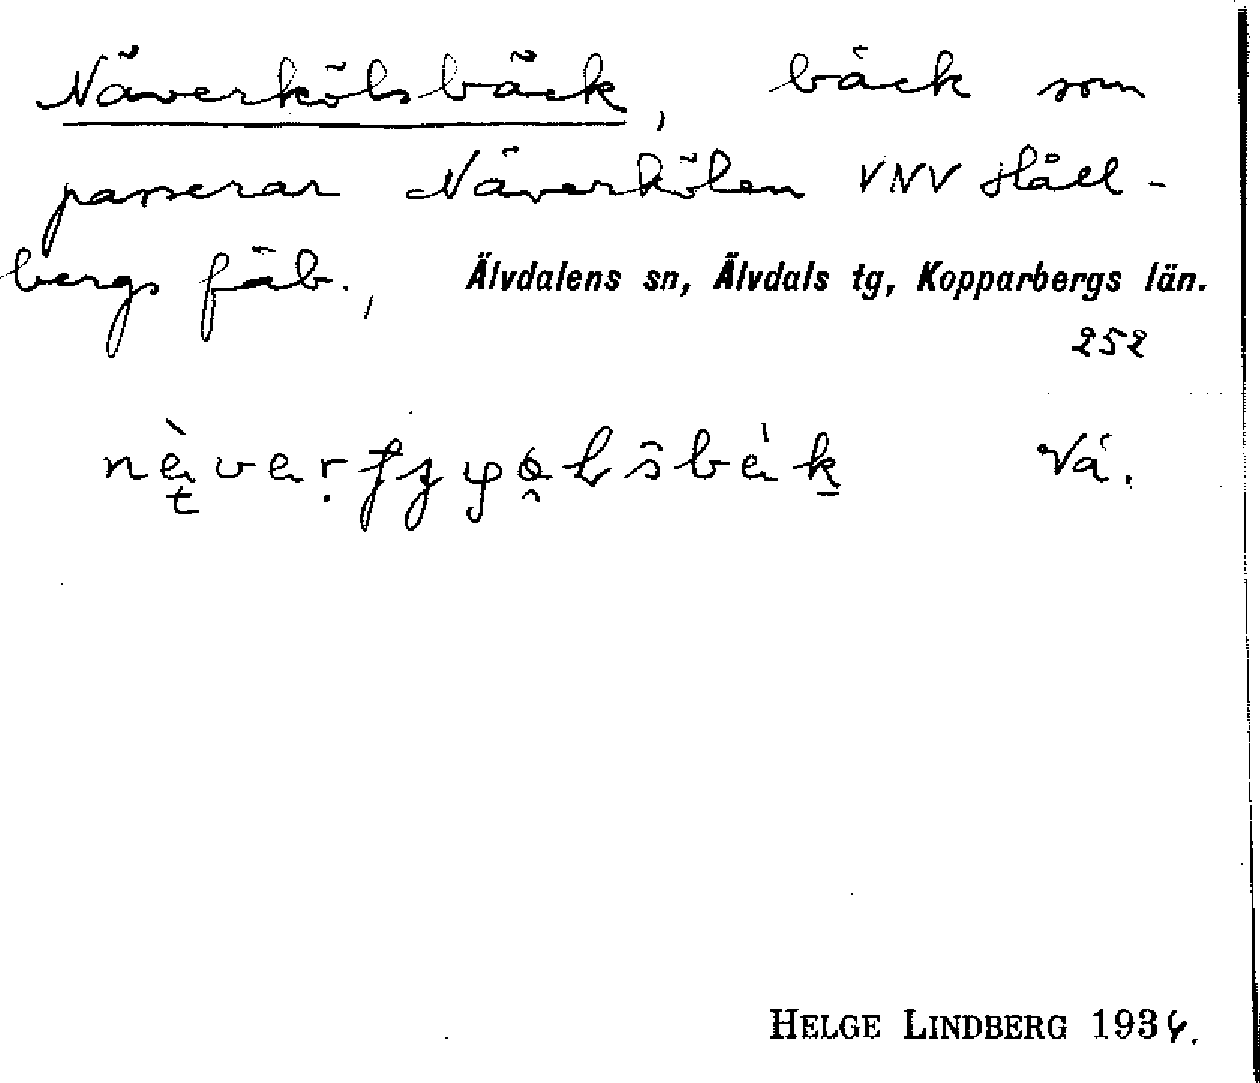 Näverkölsbäck, bäck som
passerar Näverkölen VNV Håll-
bergs fäb., Älvdalens sn, Älvdals tg, Kopparbergs län.
252
Vå.
HELGE LINDBERG 1936.